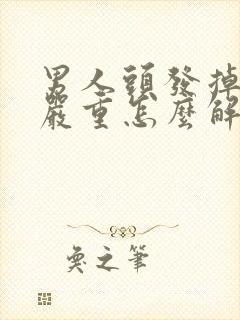 男人頭發掉
嚴重怎麼解
奐之筆